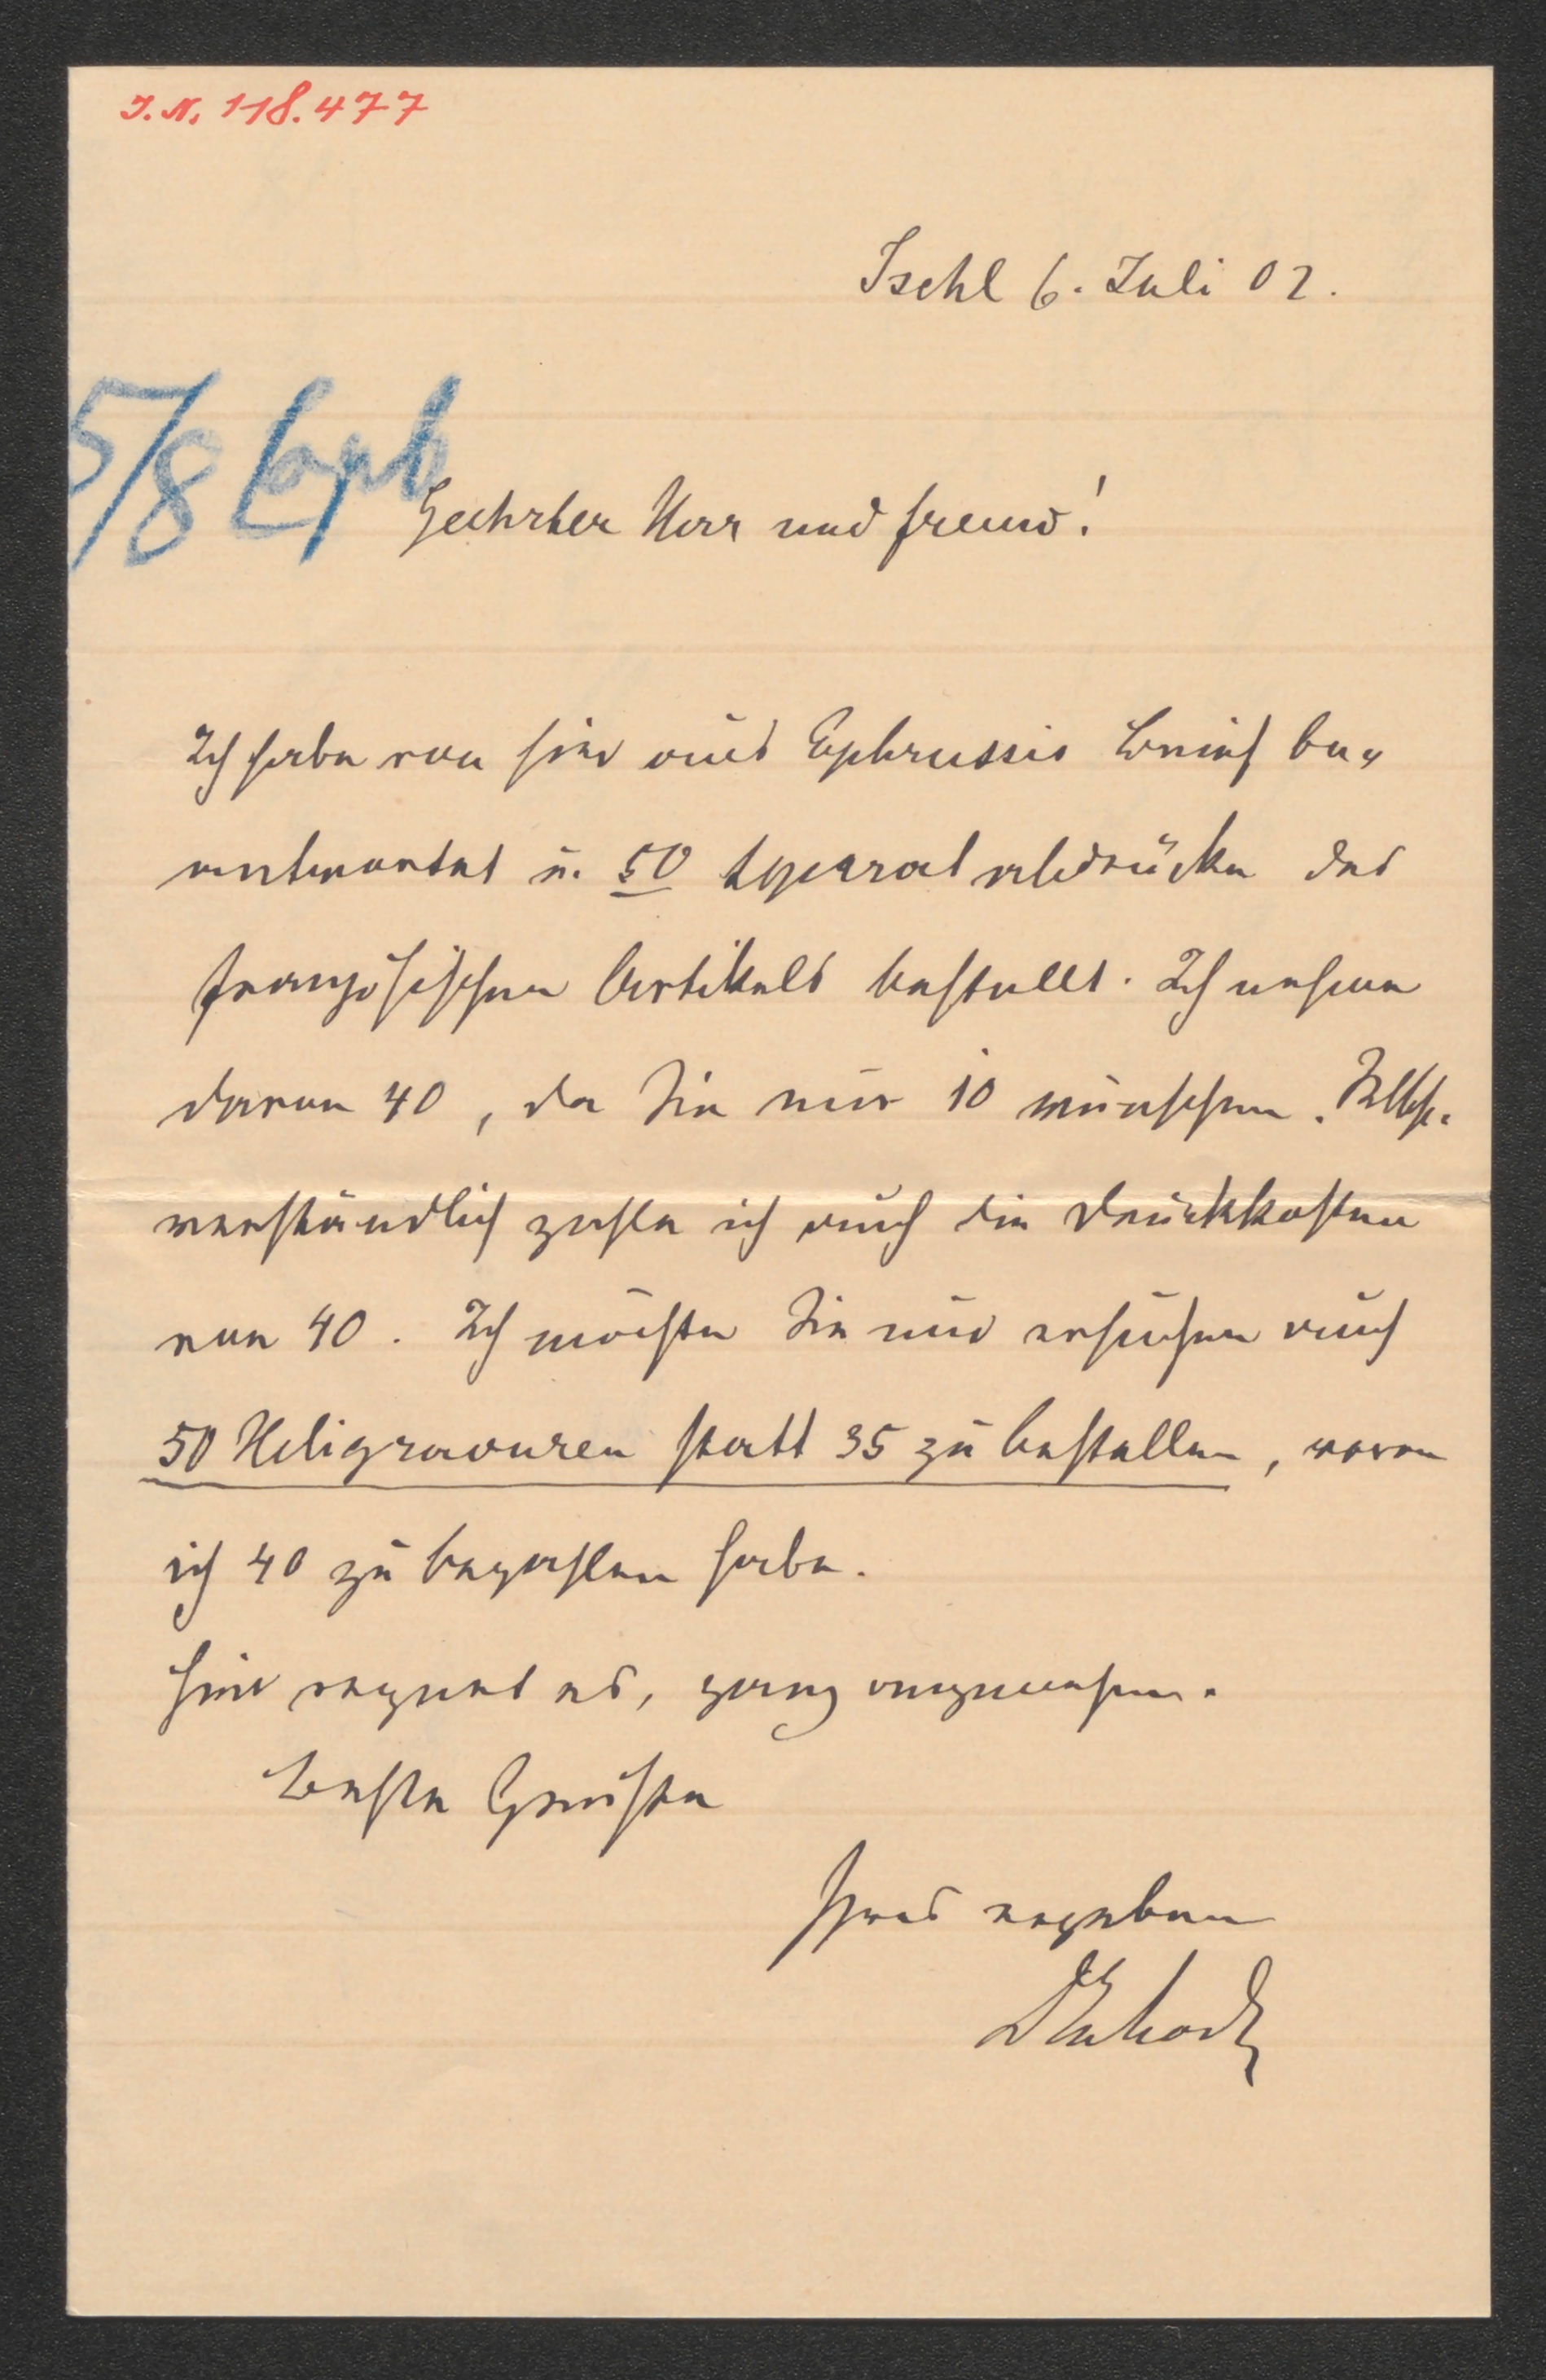 I.N. 118.477
Ischl 6. Juli 02.
5/8 Eph
Geehrter Herr und Freund!
Ich habe von hier aus Ephrussis Brief be„
antwortet u. 50 Separatabdrücke des
französischen Artikels bestellt. Ich nehme
davon 40, da Sie nur 10 wünschen. Selbst„
verständlich zahle ich auch die Druckkosten
von 40. Ich möchte Sie nur ersuchen auch
50 Heligravuren statt 35 zu bestellen, wovon
ich 40 zu bezahlen habe.
Hier regnet es, ganz angenehm.
Beste Grüsse
Ihres ergebenen